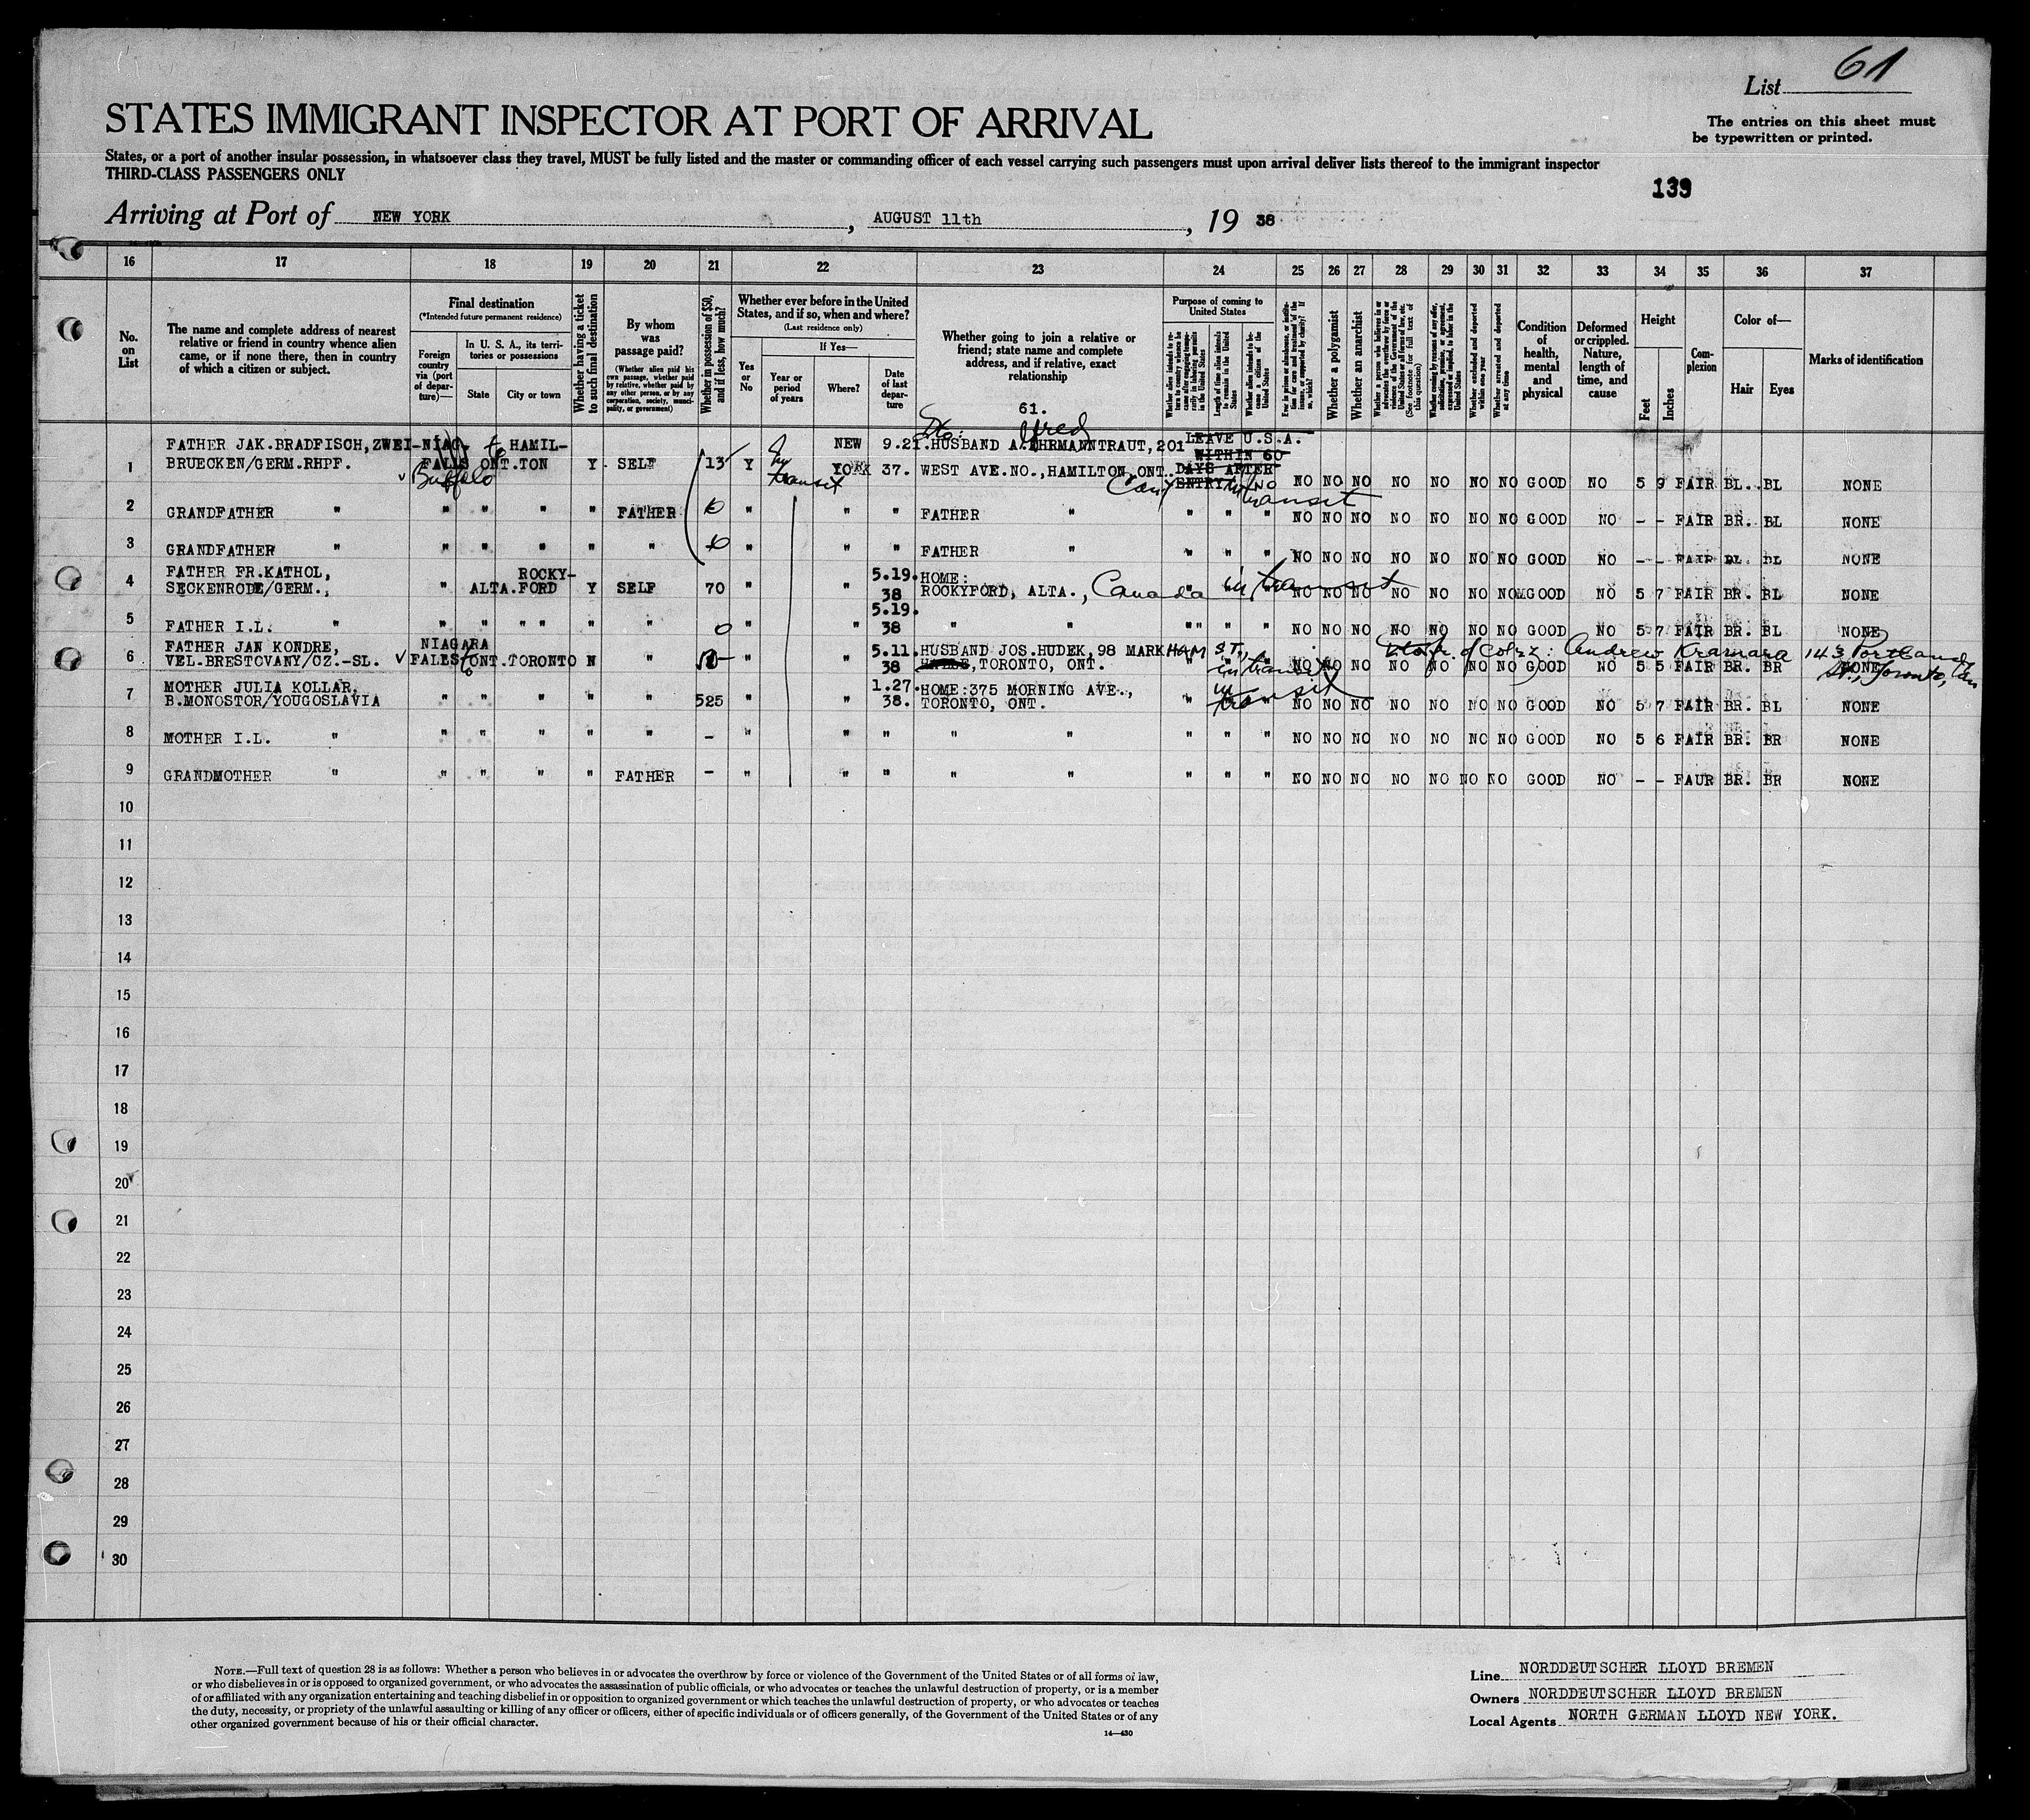 List 61
STATES IMMIGRANT INSPECTOR AT PORT OF ARRIVAL
The entries on this sheet must
be typewritten or printed.
States, or a port of another insular possession, in whatsoever class they travel, MUST be fully listed and the master or commanding officer of each vessel carrying such passengers must upon arrival deliver lists thereof to the immigrant inspector
THIRD-CLASS PASSENGERS ONLY
139
Arriving at Port of NEW YORK, AUGUST 11th, 19 38
16 17 18 19 20 21 22 23 24 25 26 27 28 29 30 31 32 33 34 35 36 37
No. on List
The name and complete address of nearest
relative or friend in country whence alien
came, or if none there, then in country
of which a citizen or subject.
Final destination
(*Intended future permanent residence)
Foreign country via (port of departure)—
In U. S. A., its territories or possessions
State
City or town
Whether having a ticket to such final destination
By whom was passage paid?
(Whether alien paid his own passage, whether paid by relative, whether paid by any other person, or by any corporation, society, municipality, or government)
Whether in possession of $50, and if less, how much?
Whether ever before in the United States, and if so, when and where?
(Last residence only)
Yes or No
If Yes—
Year or period of years
Where?
Date of last departure
Whether going to join a relative or
friend; state name and complete
address, and if relative, exact
relationship
61.
Purpose of coming to United States
Whether alien intends to return to country whence he came after engaging temporarily in laboring pursuits in the United States
Length of time alien intends to remain in the United States
Whether alien intends to become a citizen of the United States
Ever in prison or almshouse, or institution for care and treatment of the insane, or supported by charity? If so, which?
Whether a polygamist
Whether an anarchist
Whether a person who believes in or advocates the overthrow by force or violence of the Government of the United States or all forms of law, etc. (See footnote for full text of this question)
Whether coming by reasons of any offer, solicitation, promise, or agreement, expressed or implied, to labor in the United States
Whether excluded and deported within one year
Whether arrested and deported at any time
Condition of health, mental and physical
Deformed or crippled. Nature, length of time, and cause
Height
Feet
Inches
Complexion
Color of—
Hair
Eyes
Marks of identification
FATHER JAK.BRADFISCH,ZWEI-NIAG. to HAMIL- In NEW 9.21. HUSBAND Alfred EHRMANNTRAUT,201 LEAVE U.S.A.
WITHIN 60
1 BRUECKEN/GERM.RHPF. FALLS ONT.TON Y SELF 13 Y transit YORK 37. WEST AVE.NO.,HAMILTON,ONT. DAYS AFTER
Buffalo Can ENTRY NO in transit NO NO NO NO NO NO NO GOOD NO 5 9 FAIR BL. BL NONE
2 GRANDFATHER " " " " " FATHER 0 " " " FATHER " " " " NO NO NO NO NO NO NO GOOD NO - - FAIR BR. BL NONE
3 GRANDFATHER " " " " " " 0 " " " FATHER " " " " NO NO NO NO NO NO NO GOOD NO - - FAIR BL. BL NONE
FATHER FR.KATHOL, ROCKY- 5.19. HOME:
4 SECKENRODE/GERM., " ALTA.FORD Y SELF 70 " " 38 ROCKYFORD, ALTA., Canada in transit NO NO NO NO NO NO NO GOOD NO 5 7 FAIR BR. BL NONE
5.19.
5 FATHER I.L. " " " " " " " 0 " " 38 " " " " " NO NO NO NO NO NO NO GOOD NO 5 7 FAIR BR. BL NONE
FATHER JAN KONDRE, NIAGARA 5.11. HUSBAND JOS.HUDEK,98 MARKHAM ST, of Andrew Kramara 143 Portland
6 VEL.BRESTOVANY/CZ.-SL. FALLS to ONT.TORONTO N " " " 38 ,TORONTO, ONT. " in transit NO NO NO NO NO NO NO GOOD NO 5 5 FAIR BR. BR NONE St., Toronto, Can
MOTHER JULIA KOLLAR, 1.27. HOME:375 MORNING AVE.,
7 B.MONOSTOR/YOUGOSLAVIA " " " " " 525 " " 38. TORONTO, ONT. " in transit NO NO NO NO NO NO NO GOOD NO 5 7 FAIR BR. BL NONE
8 MOTHER I.L. " " " " " " - " " " " " " " " NO NO NO NO NO NO NO GOOD NO 5 6 FAIR BR. BR NONE
9 GRANDMOTHER " " " " " FATHER - " " " " " " " " NO NO NO NO NO NO NO GOOD NO - - FAUR BR. BR NONE
10
11
12
13
14
15
16
17
18
19
20
21
22
23
24
25
26
27
28
29
30
NOTE.—Full text of question 28 is as follows: Whether a person who believes in or advocates the overthrow by force or violence of the Government of the United States or of all forms of law,
or who disbelieves in or is opposed to organized government, or who advocates the assassination of public officials, or who advocates or teaches the unlawful destruction of property, or is a member
of or affiliated with any organization entertaining and teaching disbelief in or opposition to organized government or which teaches the unlawful destruction of property, or who advocates or teaches
the duty, necessity, or propriety of the unlawful assaulting or killing of any officer or officers, either of specific individuals or of officers generally, of the Government of the United States or of any
other organized government because of his or their official character.
14—430
Line NORDDEUTSCHER LLOYD BREMEN
Owners NORDDEUTSCHER LLOYD BREMEN
Local Agents NORTH GERMAN LLOYD NEW YORK.